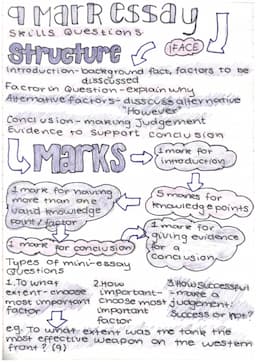 9 MARK ESSAY
SKILLS QUESTIONS
Structure
IFACE
Introduction-background fact, factors to be
discussed
Factor in Question - explain why
Alternative factors - disscuss alternative
"However"
Conclusion - making Judgement
Evidence to support conclusion
MARKS
1 mark for
introduction
1 mark for having
more than one
valid knowledge
point/factor
5 marks for
knowledge points
1 mark for conclusion
1 mark for
giving evidence
for a
conclusion
Types of mini-essay
Questions
1. To what
extent - choose
most important
factor
2. How
important-
choose most
important
factor
3. How successful
- make a
judgement:
Success or not?
eg. To what extent was the tank the
most effective weapon on the western
front? (9)